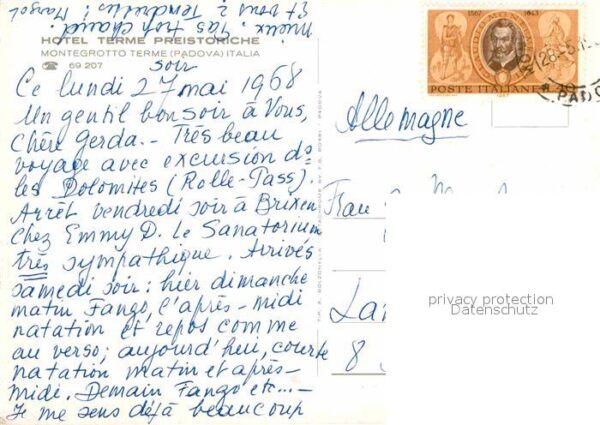 Et vous
à Tendresses! Margot
mieux! Pas trop chaud.
HOTEL TERME PREISTORICHE
MONTEGROTTO TERME (PADOVA) ITALIA
☎ 69 207
soir
Ce lundi 27 mai 1968
Un gentil bonsoir à Vous,
Chère Gerda. - Très beau
voyage avec excursion ds
les Dolomites (Rolle-Pass).
Arrêt vendredi soir à Brixen
chez Emmy D. Le Sanatorium
très sympathique. Arrivés
samedi soir: hier dimanche
matin Fango, l'après-midi
natation et repos comme
au verso; aujourd'hui, courte
natation matin et après-
midi. Demain Fango etc...-
Je me sens déjà beaucoup
1567 1643
POSTE ITALIANE 40
1967
28-5
PADO
Allemagne
Frau
La
8
privacy protection
Datenschutz